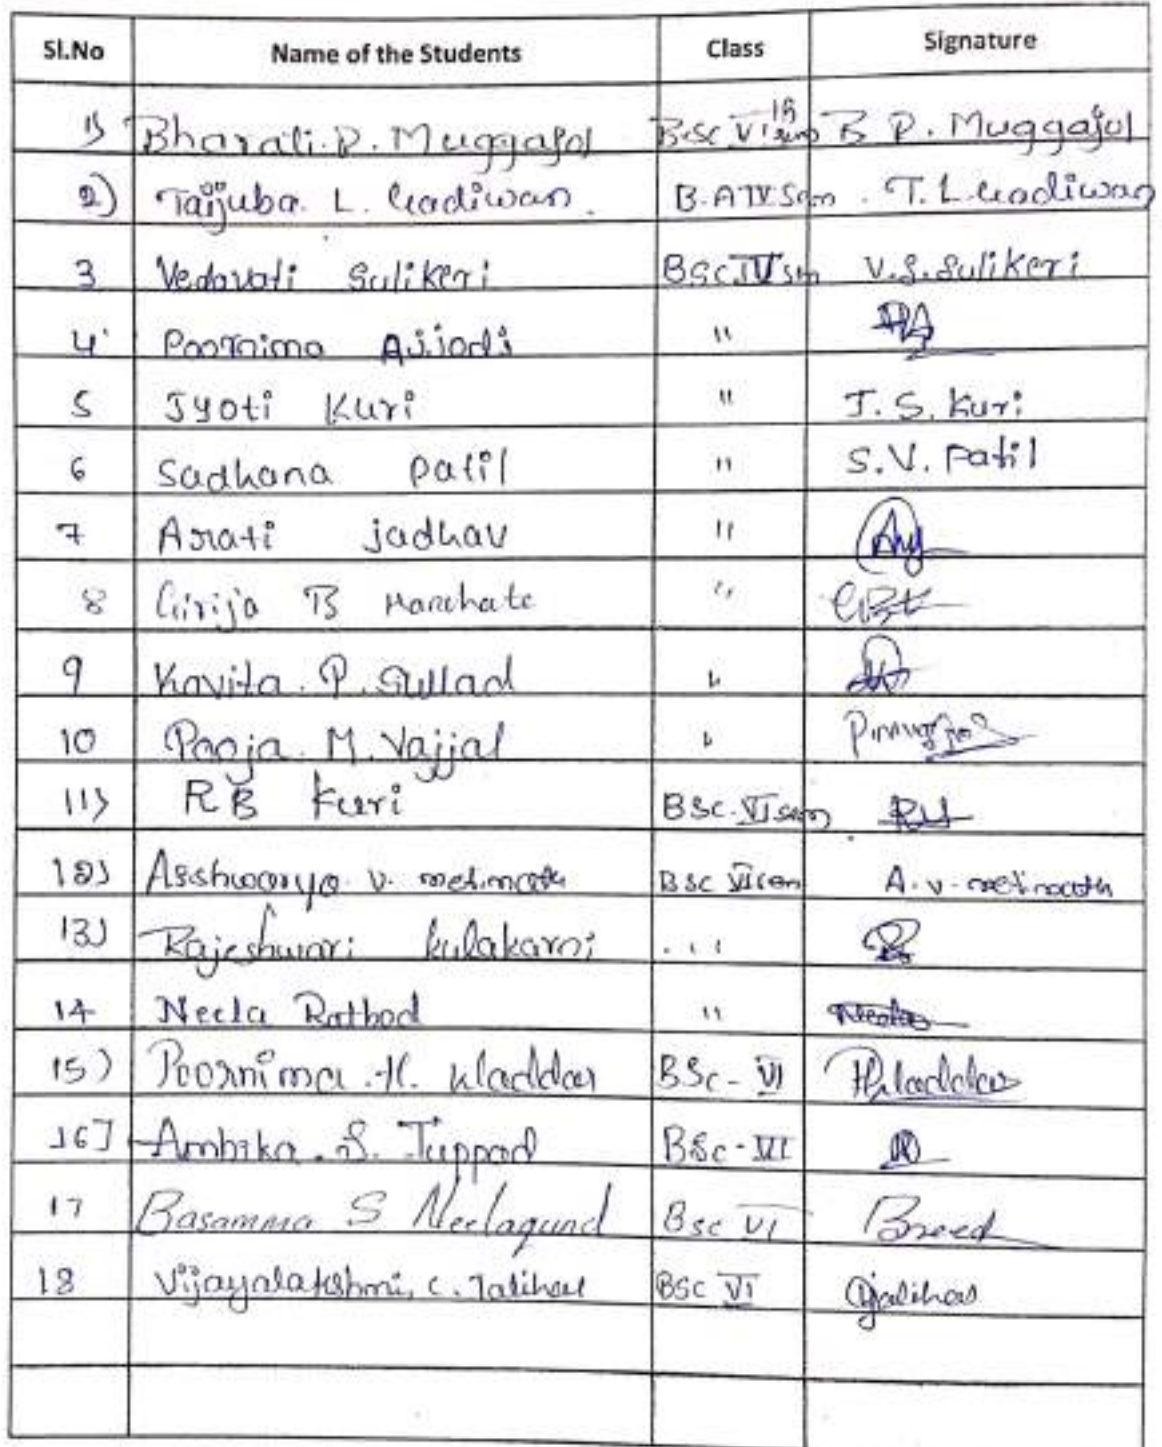 Sl.No Name of the Students Class Signature
1) Bharati.P. Muggajol B.Sc VIth sem B P. Muggajol
2) Taijuba. L. Gadiwan. B.A IV Sem. T. L. Gadiwan
3 Vedavati Sulikeri BSc IV sem V.S. Sulikeri
4 Poornima Ajjodi "
5 Jyoti Kuri " J. S. Kuri
6 Sadhana Patil " S.V. Patil
7 Arati jadhav "
8 Girija B Marchate "
9 Kavita. P. Gullad "
10 Pooja. M. Vajjal "
11) R B Kuri BSc. VI sem
12) Asshwarya. v. metimath BSc VI sem A. v. metimath
13) Rajeshwari kulakarni "
14 Neela Rathod " Neela
15) Poornima .H. kladdar BSc - VI
16] Ambika. S. Tuppad BSc - VI
17 Basamma S Neelagund Bsc VI
18 Vijayalakshmi, C. Jalihal BSC VI Cjalihal